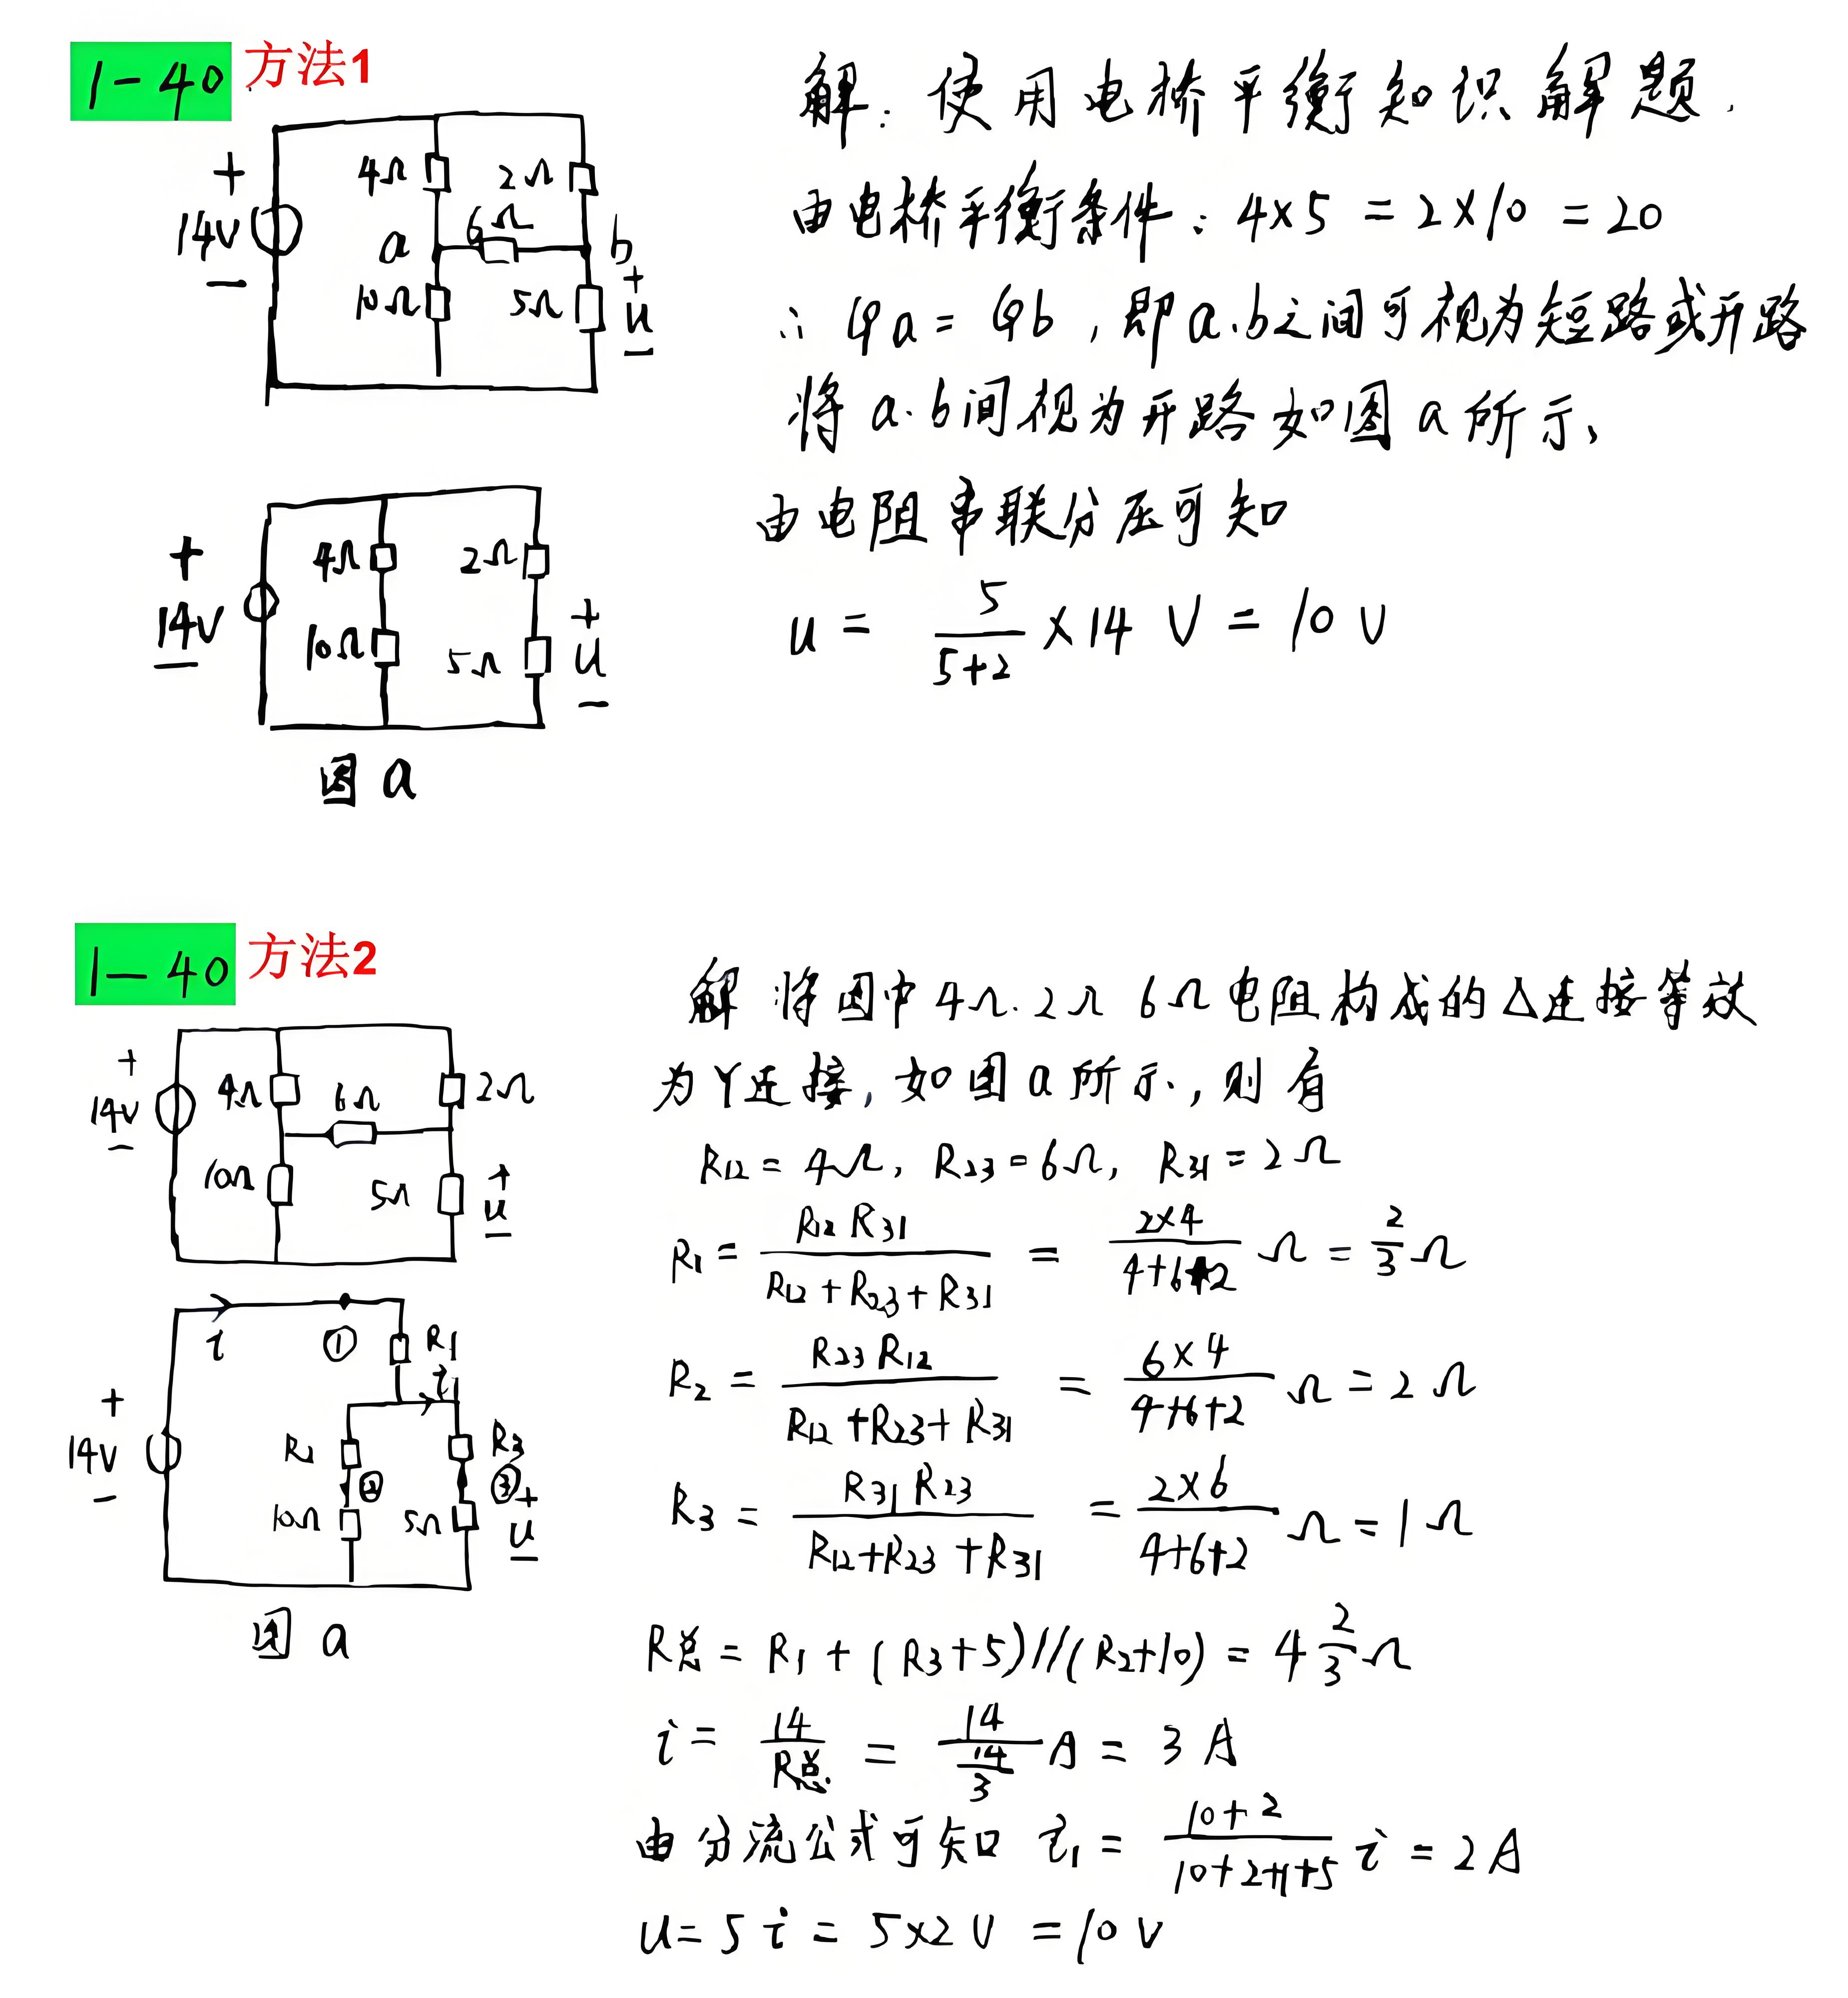 1-40 方法1
解：使用电桥平衡知识解题.
由电桥平衡条件：4×5 = 2×10 = 20
∴ φa = φb，即a.b之间可视为短路或开路
将a.b间视为开路如图a所示、
由电阻串联分压可知
u = 5/(5+2) ×14 V = 10 V
+
14V
−
4Ω
2Ω
6Ω
a
b
10Ω
5Ω
+
u
−
+
14V
−
4Ω
2Ω
10Ω
5Ω
+
u
−
图a
1-40 方法2
解 将图中4Ω.2Ω 6Ω电阻构成的△连接等效
为Y连接，如图a所示，则有
R12 = 4Ω，R23 = 6Ω，R31 = 2Ω
R1 = R12 R31/(R12+R23+R31) = 2×4/(4+6+2) Ω = 2/3 Ω
R2 = R23 R12/(R12+R23+R31) = 6×4/(4+6+2) Ω = 2Ω
R3 = R31 R23/(R12+R23+R31) = 2×6/(4+6+2) Ω = 1Ω
R总 = R1 + (R3+5)//(R2+10) = 4 2/3 Ω
i = 14/R总 = 14/(14/3) A = 3 A
由分流公式可知 i1 = (10+2)/(10+2+1+5) i = 2A
u = 5 i = 5×2 V = 10 V
+
14V
−
4Ω
6Ω
2Ω
10Ω
5Ω
+
u
−
i
①
R1
i1
+
14V
−
R2
R3
②
③
10Ω
5Ω
+
u
−
图a